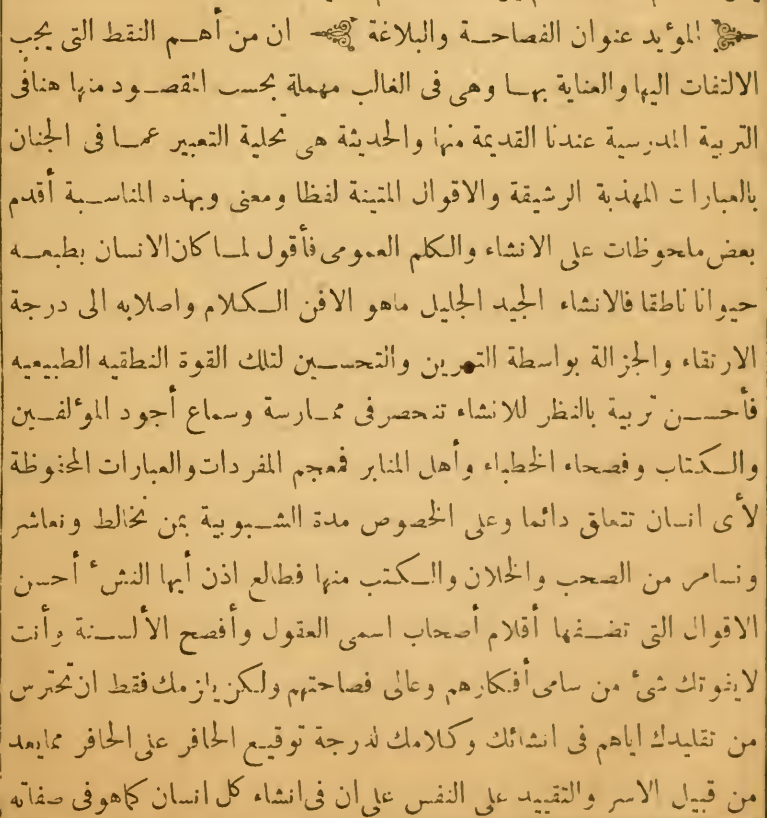 المؤيد عنوان الفصاحة والبلاغة ان من أهم النقط التى يجب
الالتفات اليها والعناية بها وهى فى الغالب مهملة بحسب المقصود منها هنافى
التربية المدرسية عندنا القديمة منها والحديثة هى تحلية التعبير عما فى الجنان
بالعبارات المهذبة الرشيقة والاقوال المتينة لفظا ومعنى وبهذه المناسبة أقدم
بعض ملحوظات على الانشاء والكلم العمومى فأقول لما كان الانسان بطبعه
حيوانا ناطقا فالانشاء الجيد الجليل ماهو الافن الكلام واصلابه الى درجة
الارتقاء والجزالة بواسطة التمرين والتحسين لتلك القوة النطقيه الطبيعيه
فأحسن تربية بالنظر للانشاء تنحصر فى ممارسة وسماع أجود المؤلفين
والكتاب وفصحاء الخطباء وأهل المنابر فمعجم المفردات والعبارات المحفوظة
لأى انسان تتعلق دائما وعلى الخصوص مدة الشبوبية بمن نخالط ونعاشر
ونسامر من الصحب والخلان والكتب منها فطالع اذن أيها النشء أحسن
الاقوال التى تضفها أقلام أصحاب اسمى العقول وأفصح الألسنة وأنت
لايفوتك شئ من سامى أفكارهم وعالى فصاحتهم ولكن يلزمك فقط ان تحترس
من تقليدك اياهم فى انشائك وكلامك لدرجة توقيع الحافر على الحافر مما يعد
من قبيل الاسر والتقييد على النفس على ان فى انشاء كل انسان كماهو فى صفاته